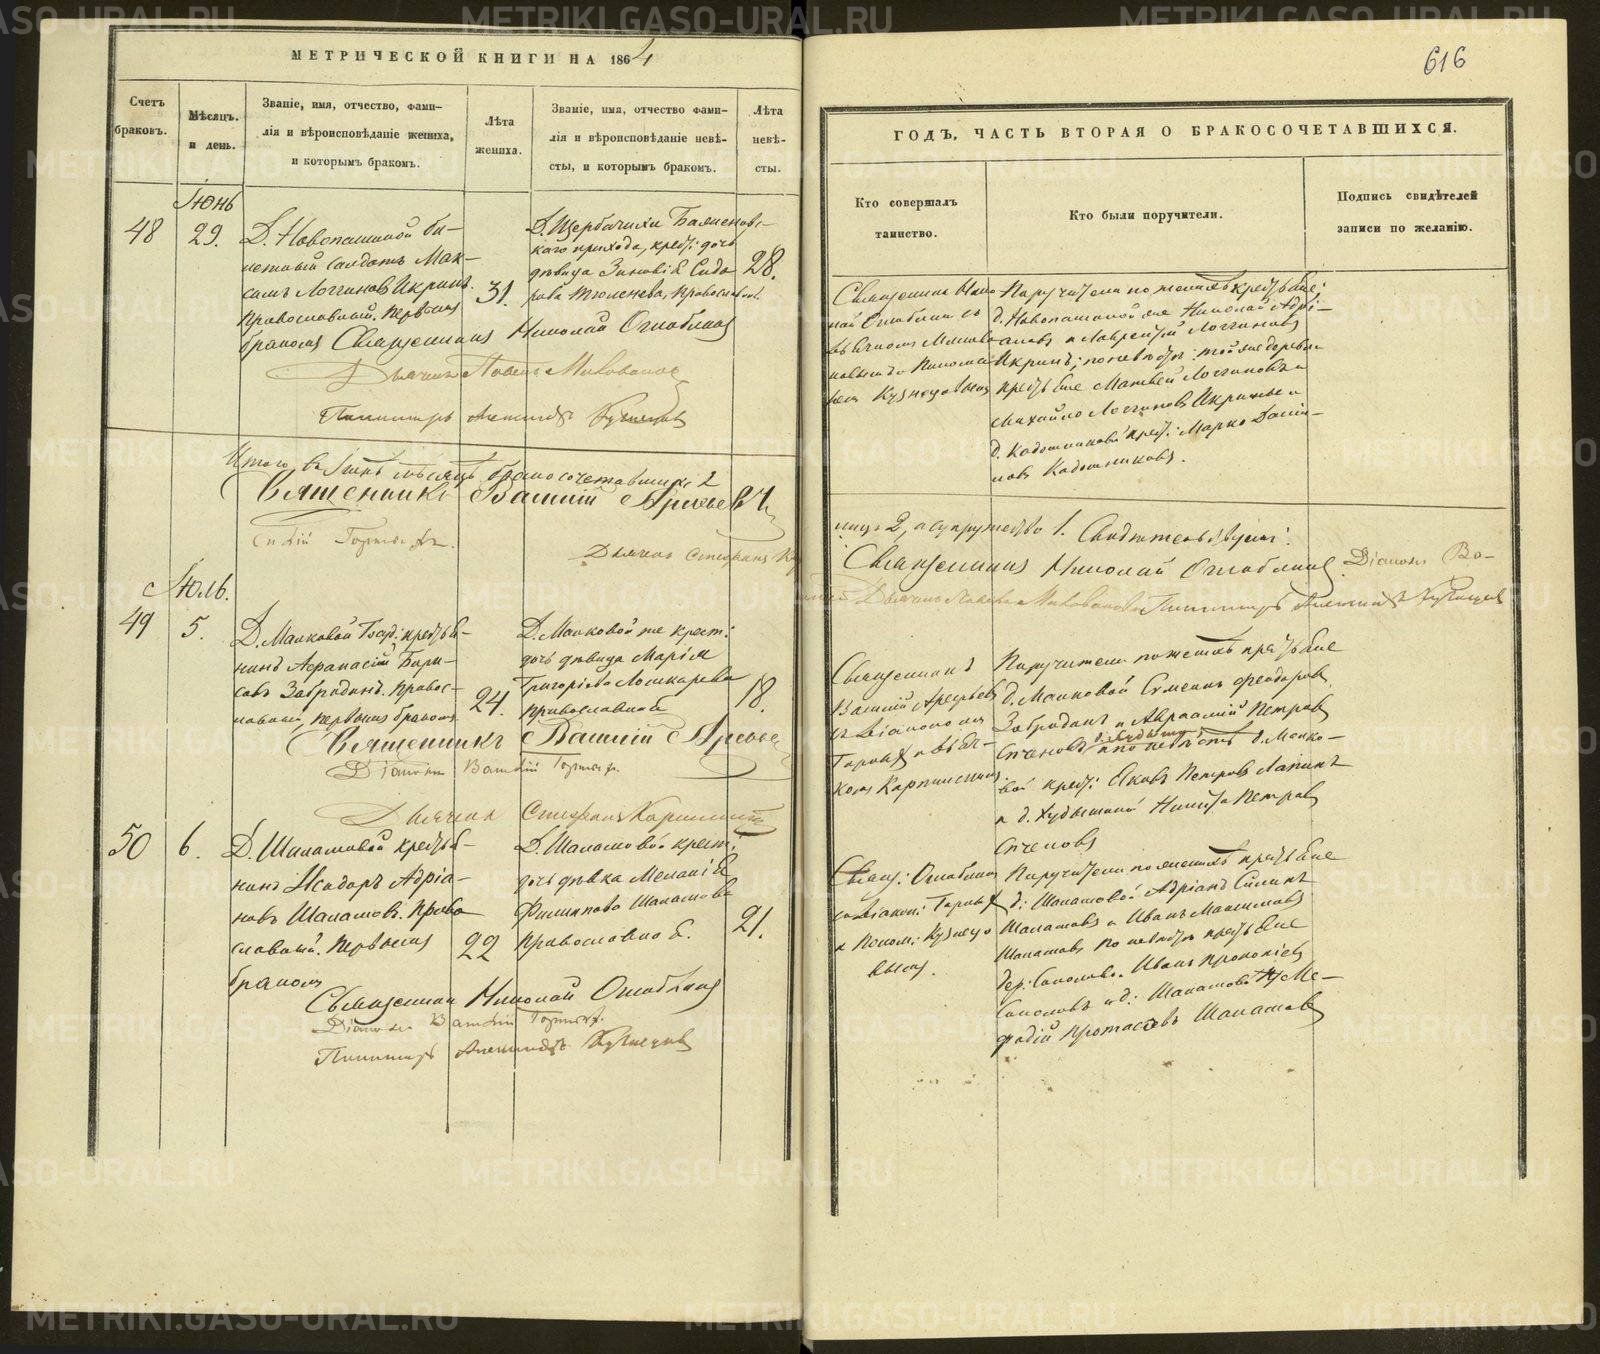 МЕТРИЧЕСКОЙ КНИГИ НА 1864
Счетъ браковъ.
Мѣсяцъ и день.
Званіе, имя, отчество, фами-
лія и вѣроисповѣданіе жениха,
и которымъ бракомъ.
Лѣта
жениха.
Званіе, имя, отчество фами-
лія и вѣроисповѣданіе невѣ-
сты, и которымъ бракомъ.
Лѣта
невѣ-
сты.
Іюнь
48
29.
Д. Новопашиной би-
летный солдатъ Мак-
симъ Логгиновъ Икринъ.
Православный. Первымъ
бракомъ
31.
Д. Щербачихи
каго прихода, крест: дочь
дѣвица Зиновія Сидо
рова Тюленева, православ.
28.
Священникъ Николай Оглоблинъ
Дьячекъ Миловановъ
Пономарь Кузнецовъ
Итого въ Іюнѣ мѣсяцѣ бракосочетавшихся 2
Священникъ Василій Арефьевъ
Дьячекъ Стефанъ
Іюль.
49
5.
Д. Малковой крестья-
нинъ Афанасій Бори-
совъ Забродинъ. Правос-
лавный, первымъ бракомъ
24.
Д. Малковой же крест:
дочь дѣвица Марія
Григоріева Лошкарева
Православная
18.
Священникъ Василій Арефьевъ
Діаконъ Василій
Дьячекъ Стефанъ Карпинскій
50
6.
Д. Шаламовой крестья-
нинъ Исидоръ Адріа-
новъ Шаламовъ. Право
славный. Первымъ
бракомъ
22
Д. Шаламовой крест:
дочь дѣвка Меланія
Филиппова Шаламова
Православная.
21.
Священникъ Николай Оглоблинъ
Діаконъ Василій
Пономарь Кузнецовъ
616
ГОДЪ, ЧАСТЬ ВТОРАЯ О БРАКОСОЧЕТАВШИХСЯ.
Кто совершалъ
таинство.
Кто были поручители.
Подпись свидѣтелей
записи по желанію.
Священникъ Нико
лай Оглоблинъ съ
Дьячкомъ Милова
новымъ и Понома
ремъ Кузнецовымъ
Поручители по женихѣ крестьяне:
д. Новопашиной же Николай Адрі-
ановъ и Лаврентій Логгиновъ
Икрины; по невѣстѣ: той же деревни
крестьяне Матвей Логгиновъ и
Михайло Логгиновъ Икрины и
д. Кадошниковой крест: Марко Дани-
ловъ Кадошниковъ.
лицъ 2, а супружество 1. Свидѣтельствуемъ:
Священникъ Николай Оглоблинъ Діаконъ Ва-
Дьячекъ Миловановъ Пономарь Кузнецовъ
Священникъ
Василій Арефьевъ
съ діакономъ
Карпинскимъ
Поручители по женихѣ крестьяне
д. Малковой Семенъ Феодоровъ
Забродинъ и Авраамій Петровъ
по невѣстѣ д. Малко-
вой крест: Яковъ Петровъ Лапинъ
и д. Худышиной Никита Петровъ
Свящ: Оглоблинъ
съ діакон:
и Поном: Кузнецо
вымъ.
Поручители по женихѣ крестьяне
д: Шаламовой Адріанъ Силинъ
Шаламовъ и Иванъ Максимовъ
Шаламовъ по невѣстѣ крестьяне
дер: Соколовой Иванъ Прокопіевъ
Соколовъ и д: Шаламовой Ме-
фодій Протасовъ Шаламовъ
METRIKI.GASO-URAL.RU